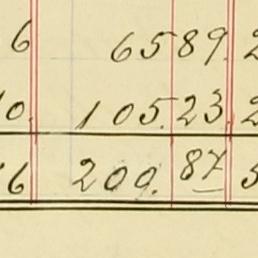 6 65 89. 2
0. 105. 23 2
6 209. 87 5